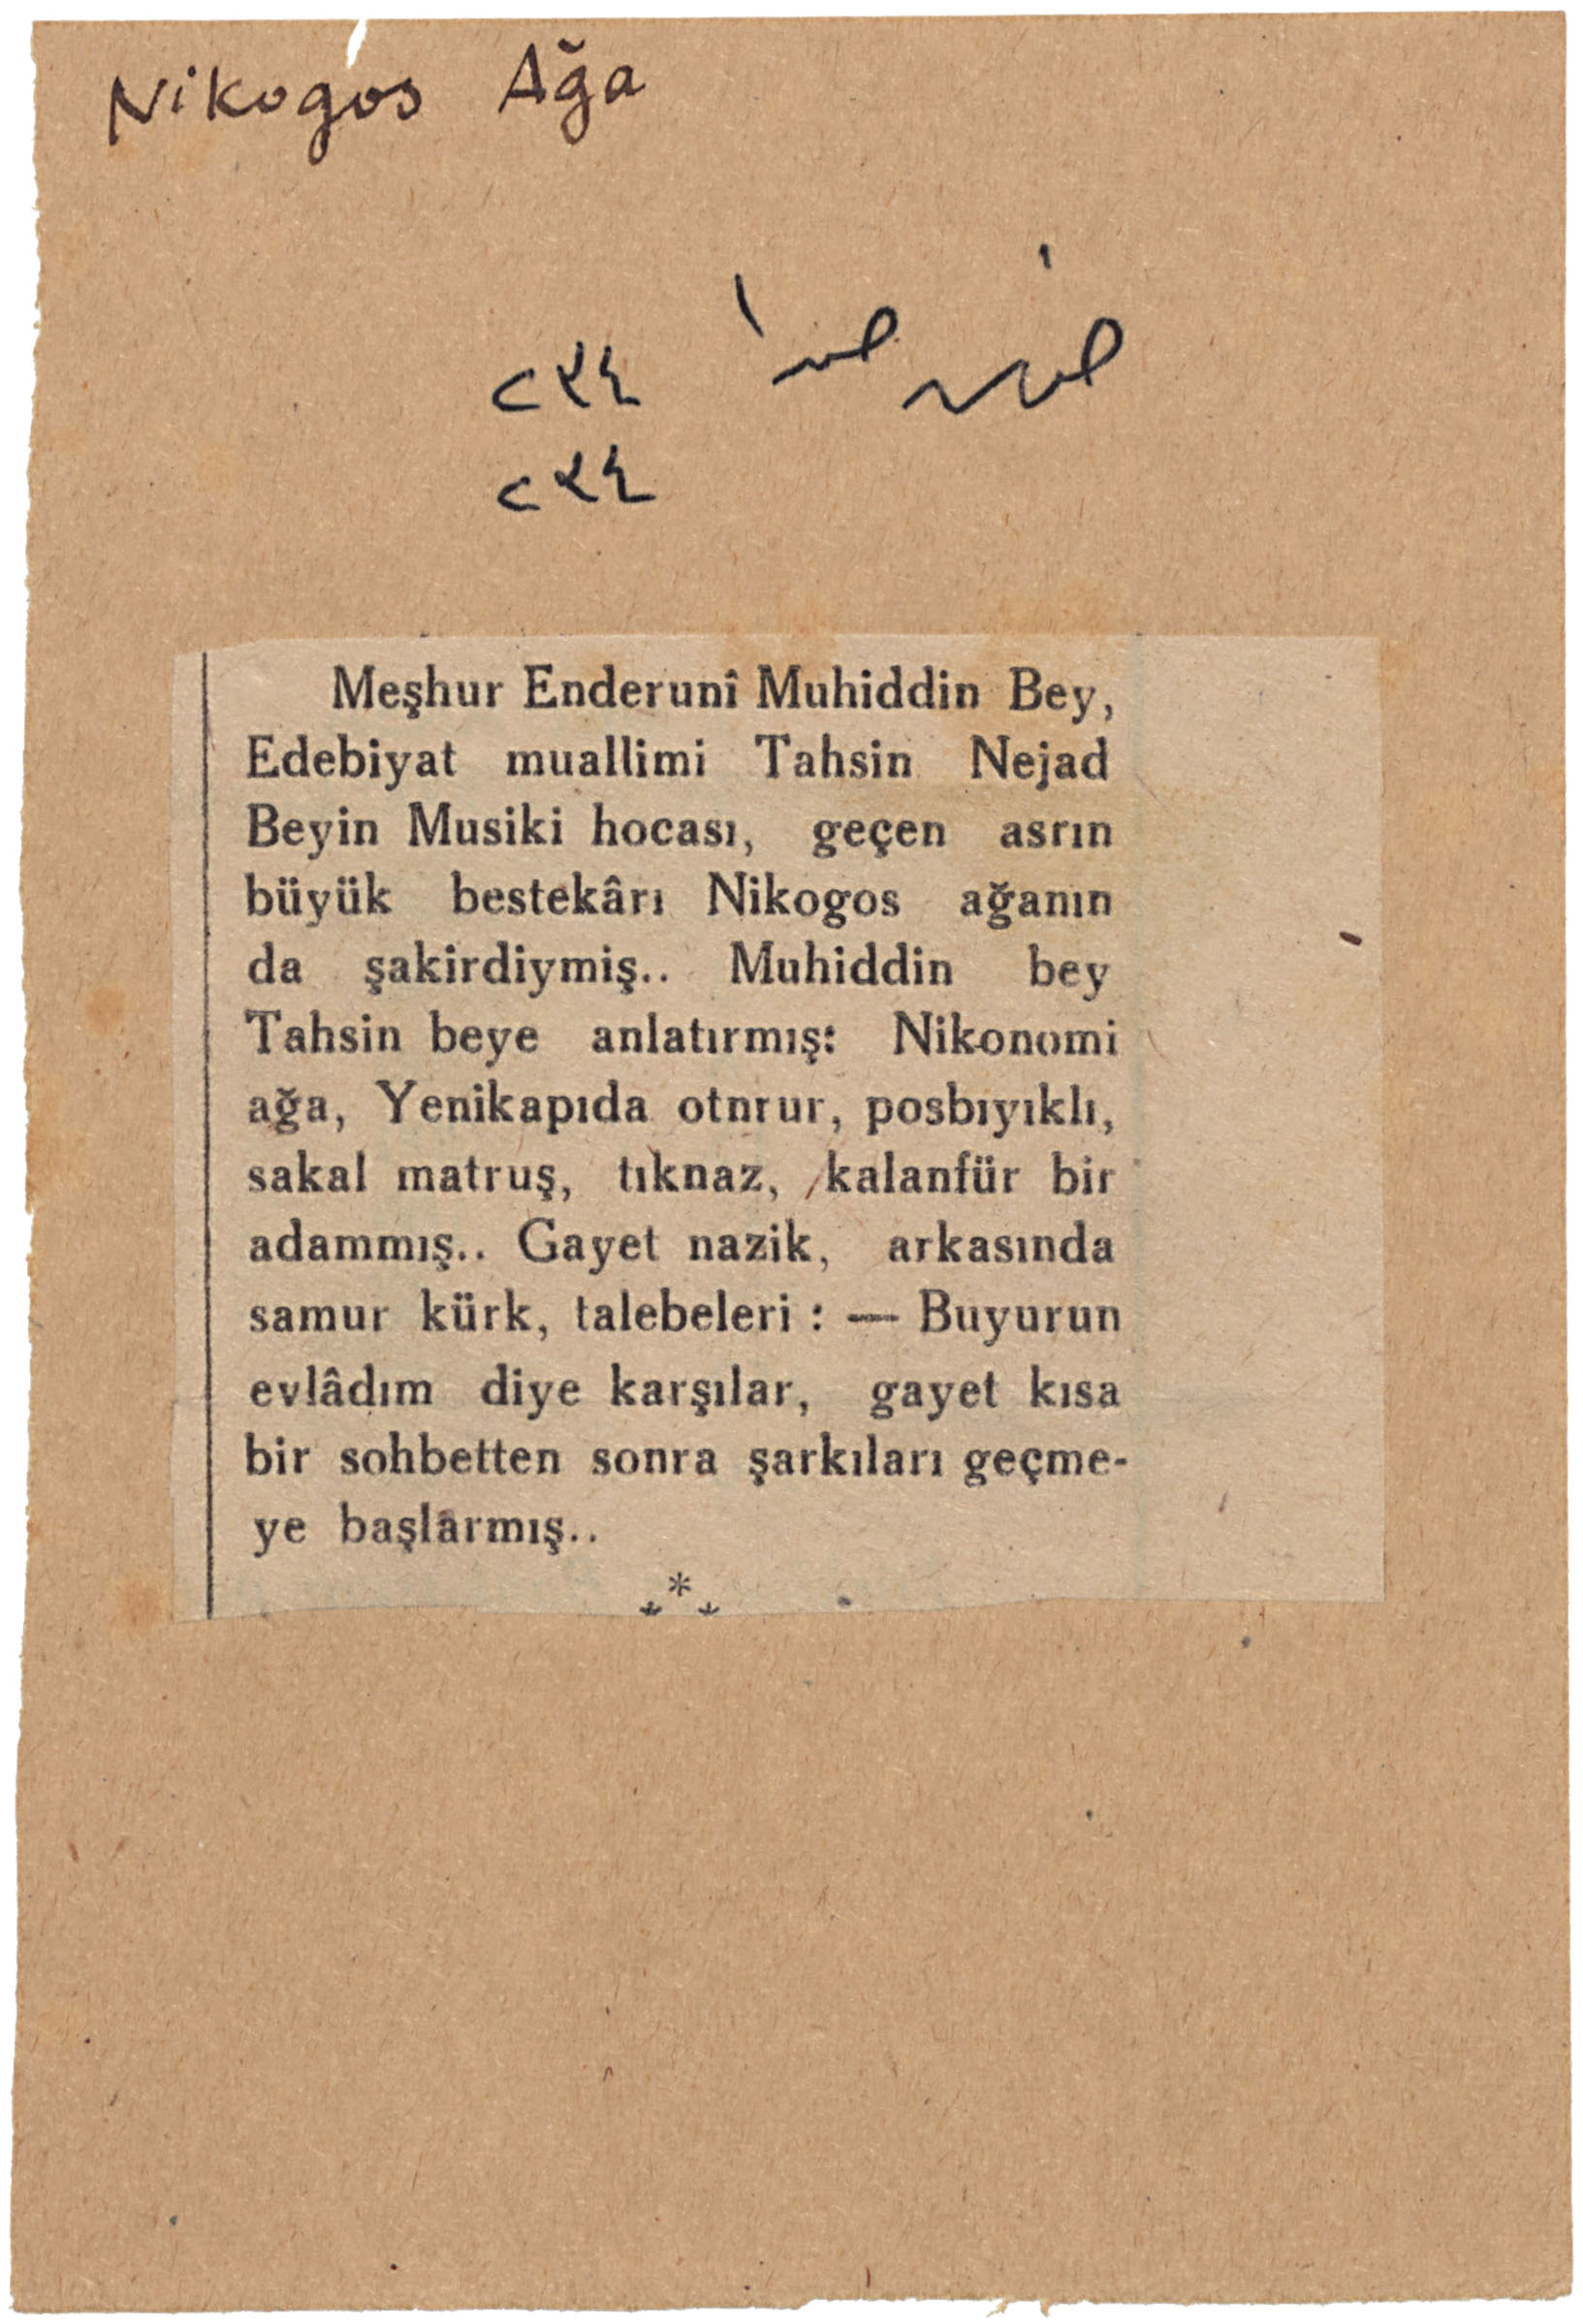 Nikogos Ağa
٢٤٤
٢٤٤
Meşhur Enderunî Muhiddin Bey,
Edebiyat muallimi Tahsin Nejad
Beyin Musiki hocası, geçen asrın
büyük bestekârı Nikogos ağanın
da şakirdiymiş.. Muhiddin bey
Tahsin beye anlatırmış: Nikonomi
ağa, Yenikapıda otnrur, posbıyıklı,
sakal matruş, tıknaz, kalanfür bir
adammış.. Gayet nazik, arkasında
samur kürk, talebeleri : — Buyurun
evlâdım diye karşılar, gayet kısa
bir sohbetten sonra şarkıları geçme-
ye başlarmış..
***